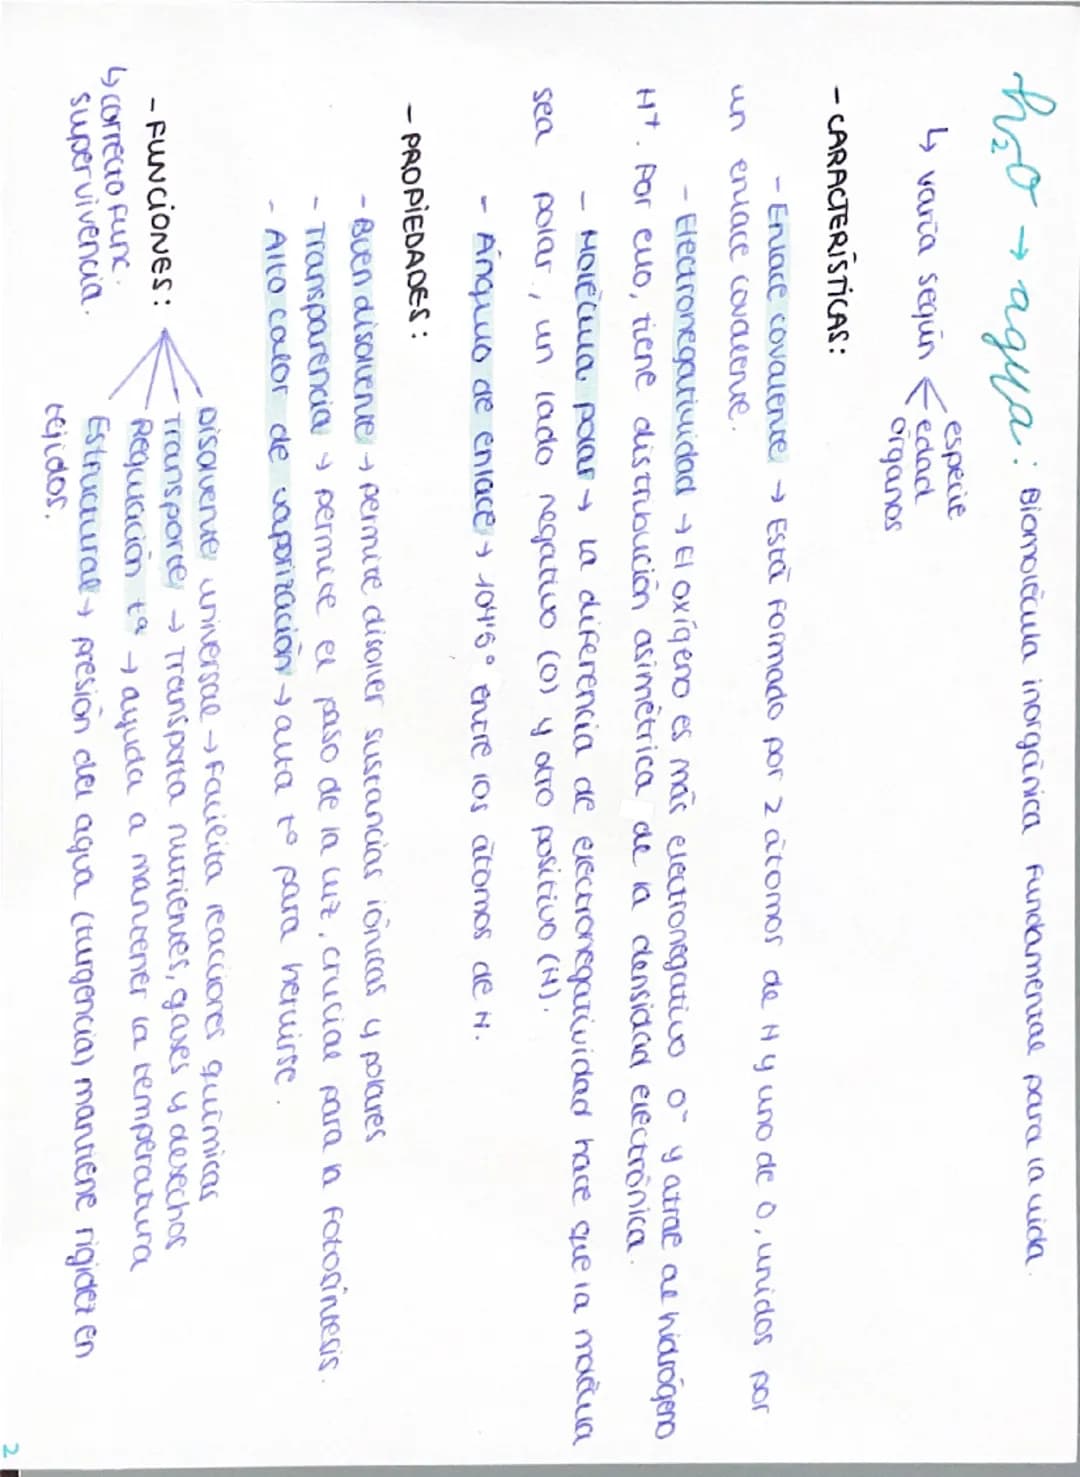 h₂O → agua: Biomolécula inorgánica fundamental para la vida.
↳ varía según < especie
edad
órganos
- CARACTERÍSTICAS:
- Enlace covalente → Está formado por 2 átomos de H y uno de O, unidos por
un enlace covalente.
- Electronegatividad → El oxígeno es más electronegativo O⁻ y atrae al hidrógeno
H⁺. Por ello, tiene distribución asimétrica de la densidad electrónica.
- Molécula polar → la diferencia de electronegatividad hace que la molécula
sea polar, un lado negativo (O) y otro positivo (H).
- Ángulo de enlace → 104'5° entre los átomos de H.
- PROPIEDADES:
- Buen disolvente → permite disolver sustancias iónicas y polares
- Transparencia → permite el paso de la luz, crucial para la fotosíntesis.
- Alto calor de vaporización → alta tº para hervirse.
- FUNCIONES:
↳ correcto func.
supervivencia.
Disolvente universal → Facilita reacciones químicas
Transporte → Transporta nutrientes, gases y desechos
Regulación tª → ayuda a mantener la temperatura
Estructural → presión del agua (turgencia) mantiene rigidez en
tejidos.
2